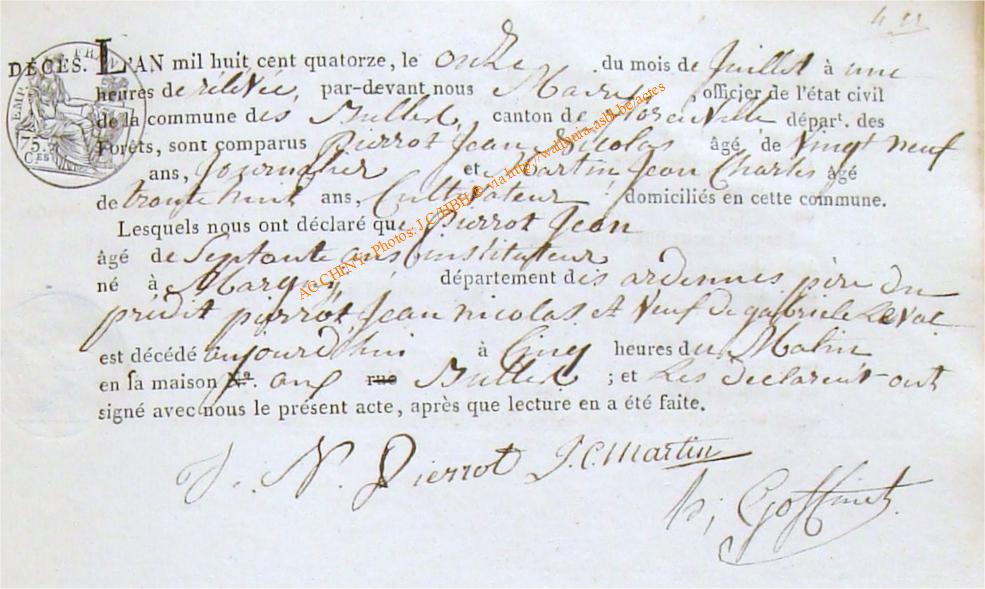 DÉCÈS. L'AN mil huit cent quatorze, le onze du mois de Juillet à une
heures de rélévée, par-devant nous Maire, officier de l'état civil
de la commune des Bulles, canton de florenville dépar^t. des
Forêts, sont comparus Pierrot Jean Nicolas âgé de Vingt neuf
ans, Journalier et Martin Jean Charles âgé
de trente huit ans, Cultivateur domiciliés en cette commune.
Lesquels nous ont déclaré que Pierrot Jean
âgé de Septante ans instituteur
né à département des ardennes père du
prédit pierrot Jean nicolas et Veuf de gabriele
est décédé aujourd'hui à Cinq heures du Matin
en sa maison N°. aux rue Bulles ; et Les déclarent ont
signé avec nous le présent acte, après que lecture en a été faite.
J. N. Pierrot J. C. Martin
Goffinet
75.
C^ES
AGCCHENY - Photos: J.C.HBH © via http://wallonia-asbl.be/actes